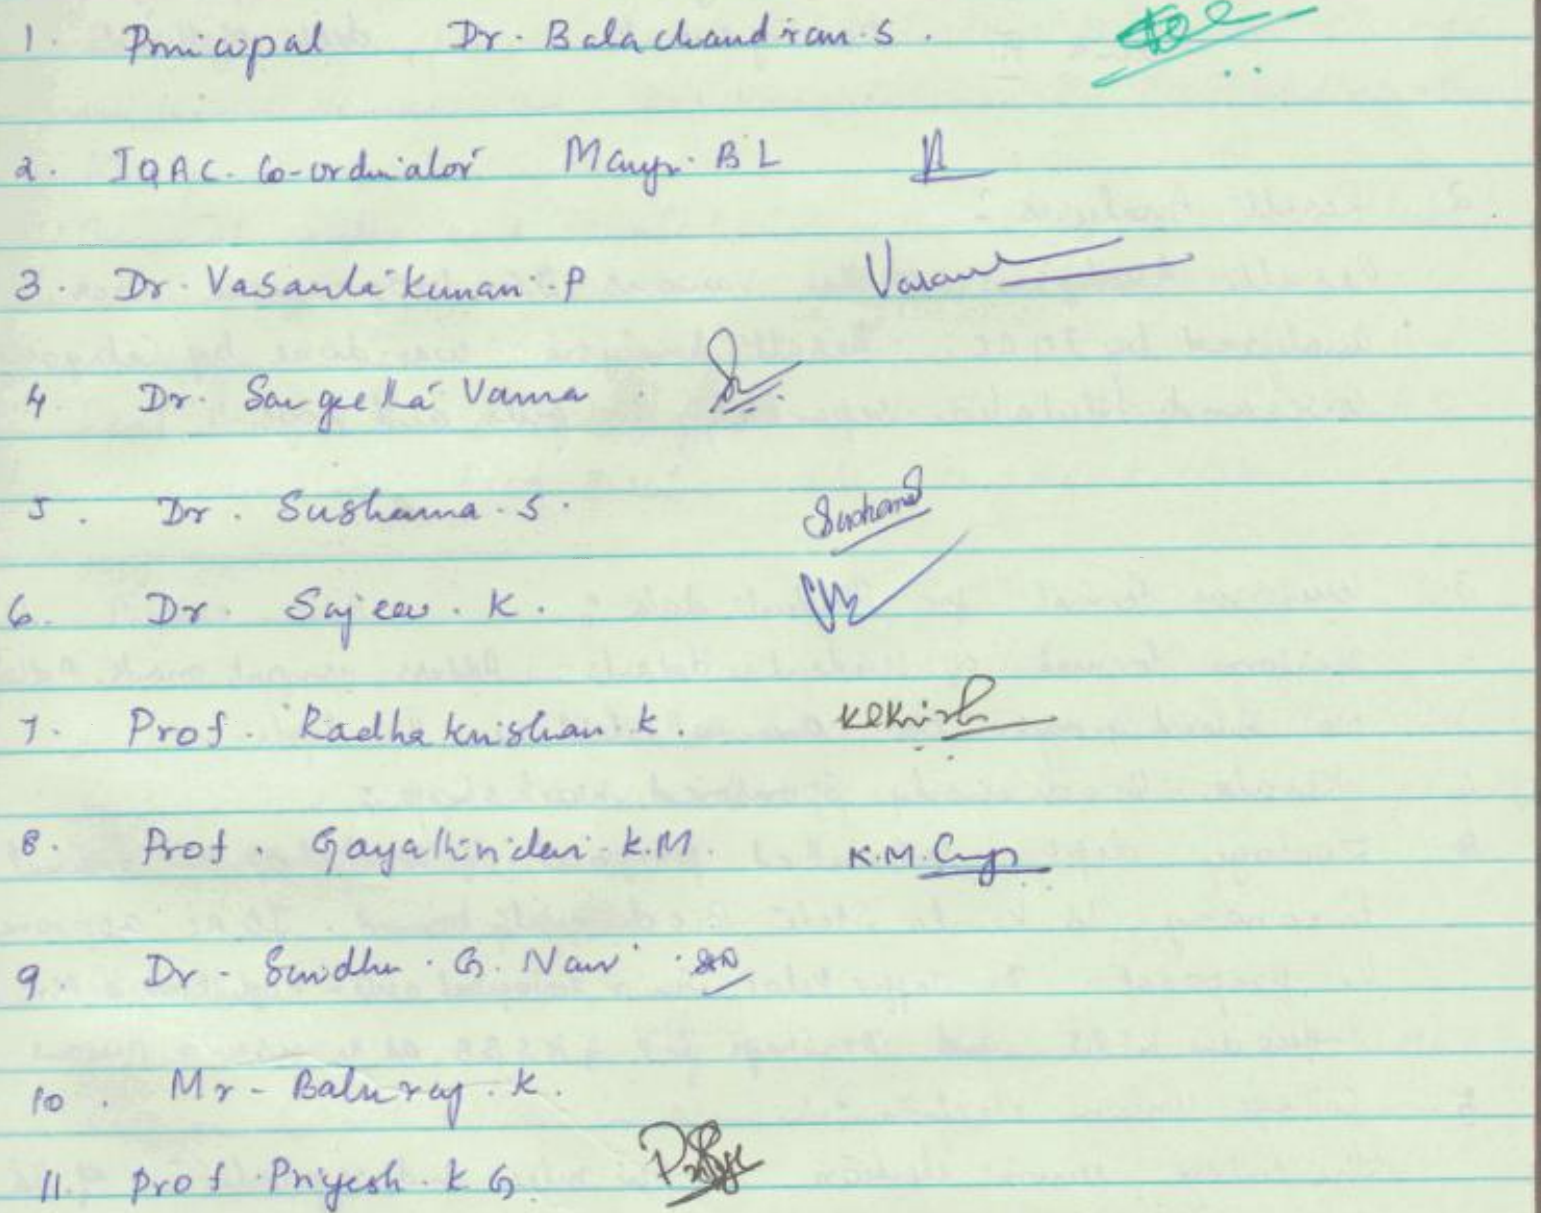 1. Principal Dr. Balachandran.S.
2. IQAC. Co-ordinator Mary. B L
3. Dr. Vasantakumari.P Vasan
4 Dr. Sangeetha Varma.
5. Dr. Sushama.S. Susham
6. Dr. Sajeev.K.
7. Prof. Radhakrishnan.K.
8. Prof. Gayathridevi.K.M. K.M.
9. Dr- Sindhu.G.Nair
10. Mr- Baluraj.K.
11. Prof.Priyesh.K G